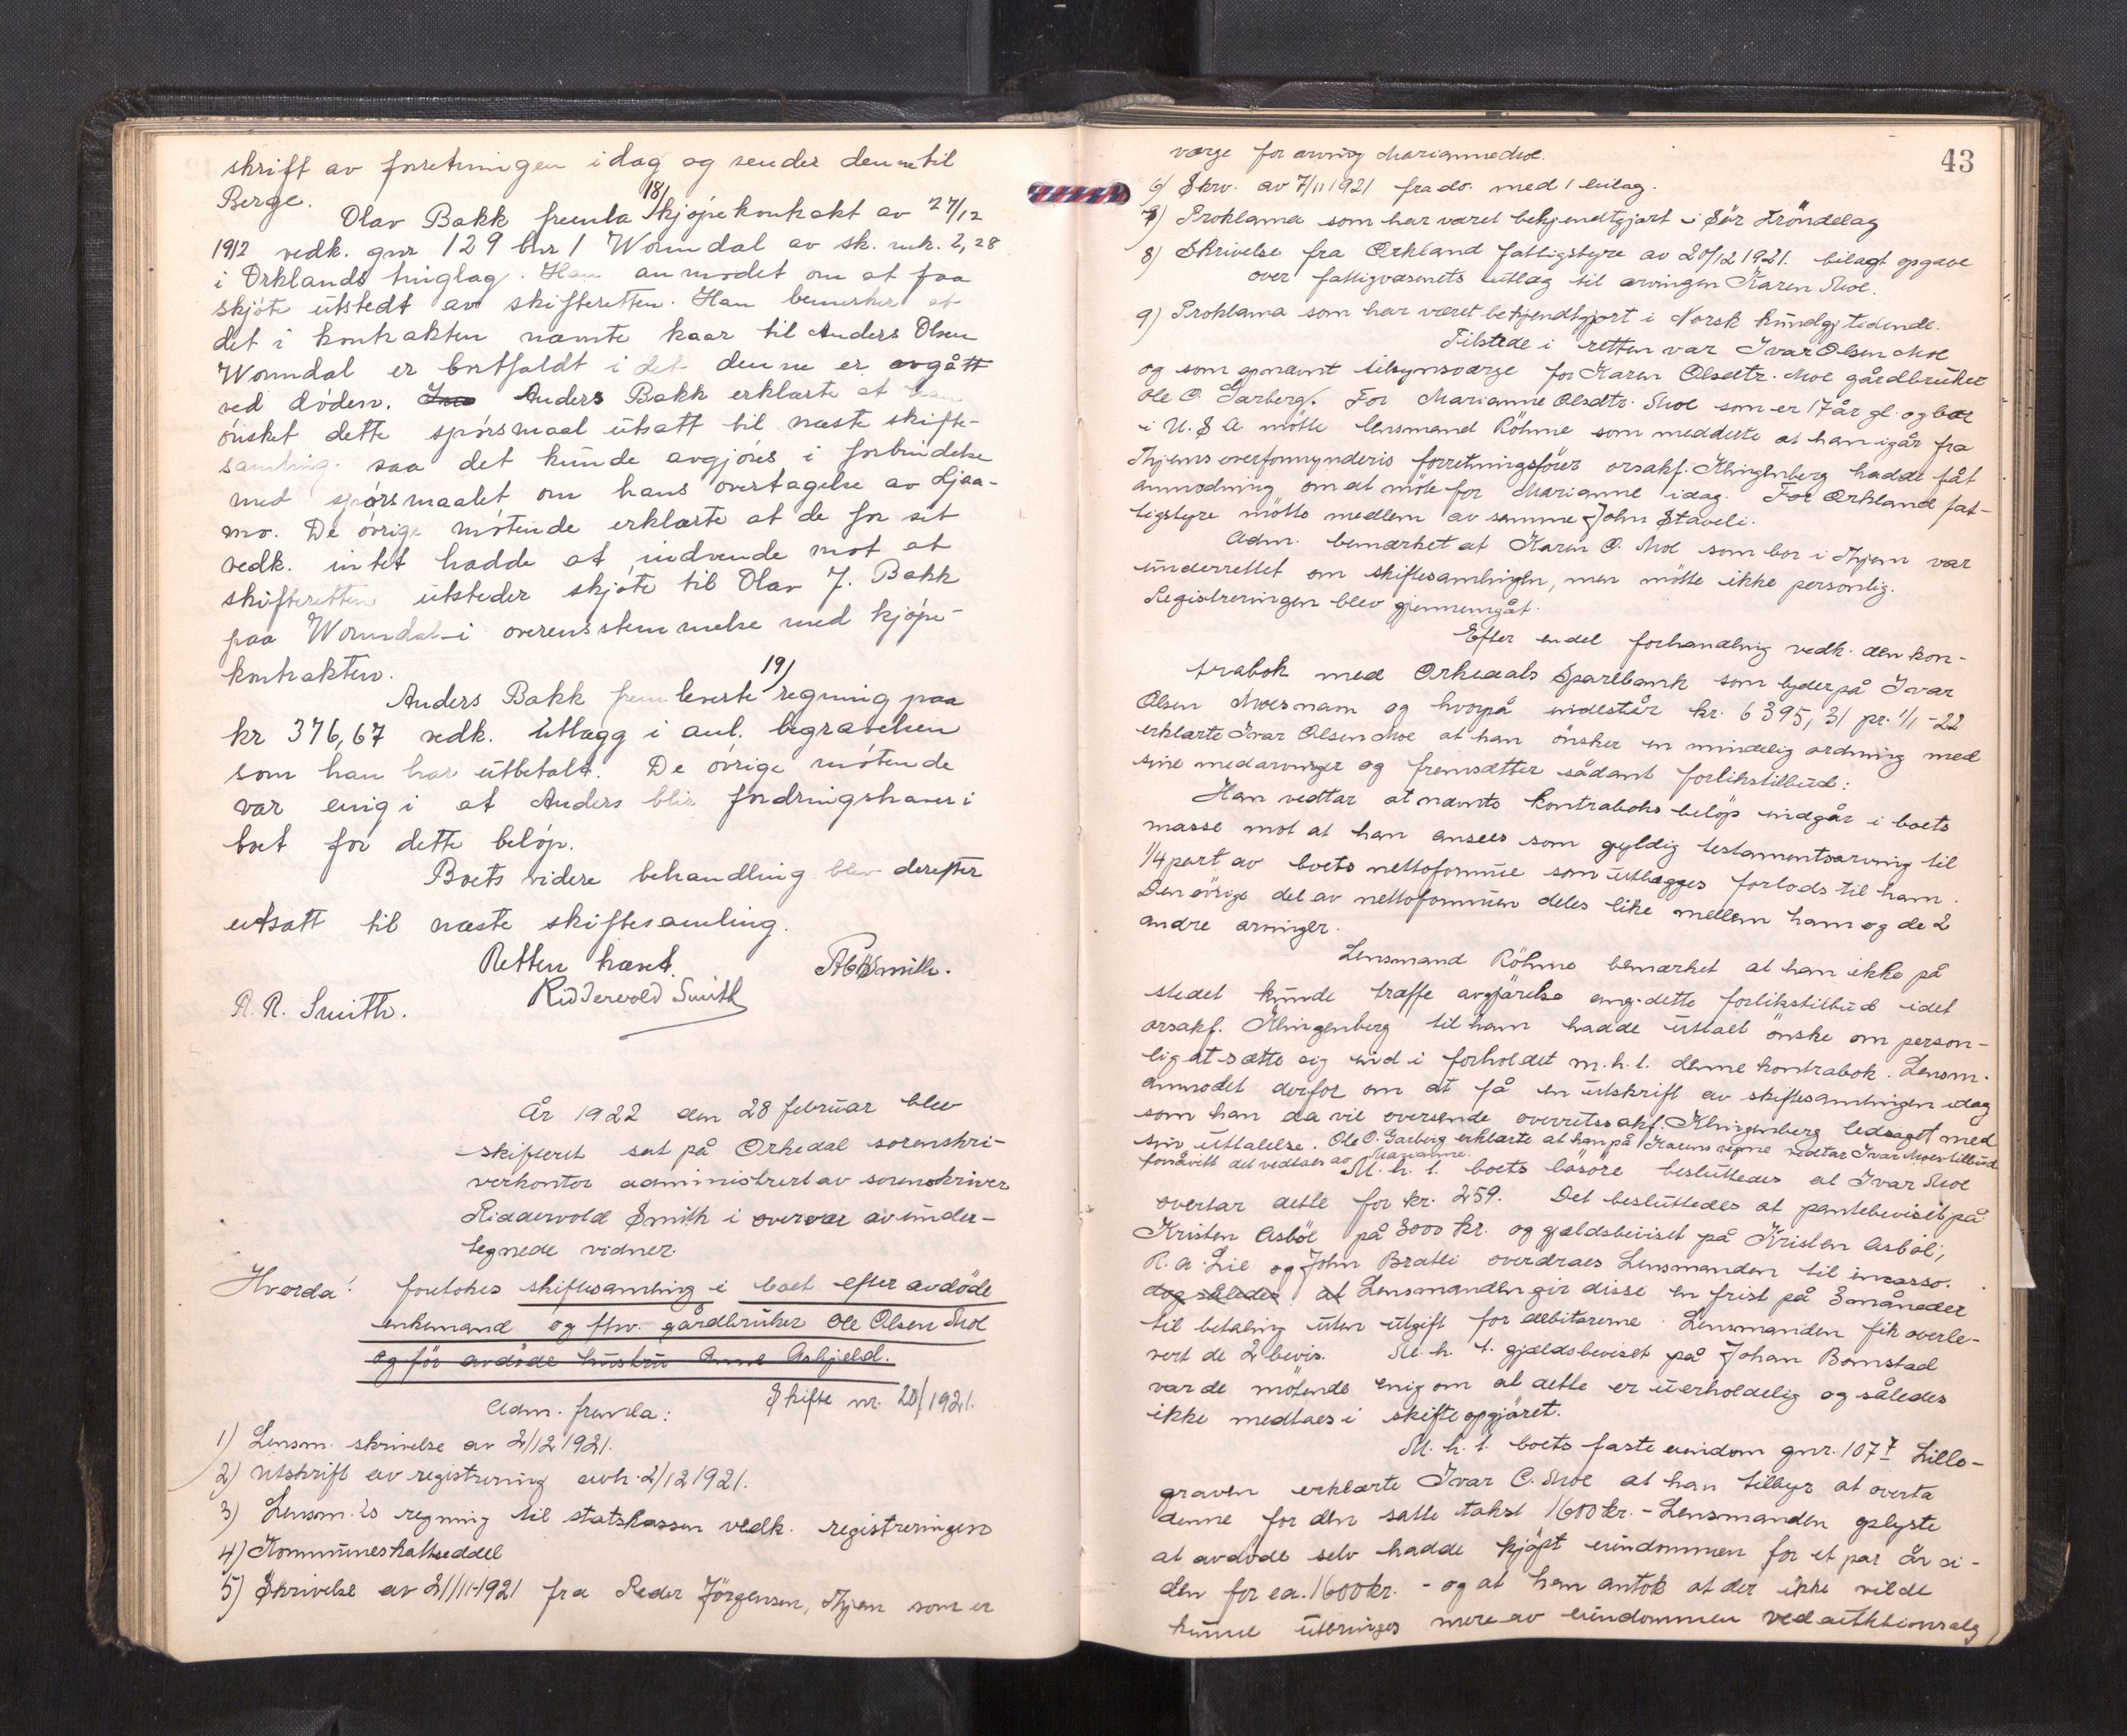 skrift av forretningen idag og sender denne til
Berge.
Olav Bakk fremla 18/ kjøpekontrakt av 27/12
1912 vedk. gnr 129 bnr 1 Wormdal av sk. mrk. 2,28
i Orklands tinglag. Han anmodet om at faa
skjøte utstedt av skifteretten. Han bemerker at
det i kontrakten nævnte kaar til Anders Olsen
Wormdal er bortfaldt i det denne er avgått
ved døden. Anders Bakk erklærte at han
ønsket dette spørsmaal utsatt til næste skifte-
samling. saa det kunde avgjøres i forbindelse
med spørsmaalet om hans overtagelse av Ljaa-
mo. De øvrige møtende erklærte at de for sit
vedk. intet hadde at indvende mot at
skifteretten utsteder skjøte til Olav J. Bakk
paa Wormdal i overensstemmelse med kjøpe-
kontrakten.
Anders Bakk fremleverte 19/ regning paa
kr 376,67 vedk. utlegg i anl. begravelsen
som han har utbetalt. De øvrige møtende
var enig i at Anders blir fordringshaver i
boet for dette beløp.
Boets videre behandling blev derefter
utsatt til næste skiftesamling.
Retten hævet.
Riddervold Smith
R. R. Smith.
År 1922 den 28 februar blev
skifteret sat på Orkedal sorenskri-
verkontor administrert av sorenskriver
Riddervold Smith i overvær av under-
tegnede vidner.
Hvorda: foretokes skiftesamling i boet efter avdöde
enkemand og fhv. gårdbruker Ole Olsen Moe
og för avdöde hustru Anne Asbjeld.
Skifte nr. 20/1921.
Adm. fremla:
1) Lensm. skrivelse av 2/12 1921.
2) Utskrift av registrering avh. 2/12 1921.
3) Lensm.'s regning til statskassen vedk. registreringen
4) Kommuneskatseddel
5) Skrivelse av 21/11-1921 fra Peder Jörgensen, Thjem som er
43
værge for arving Marianne Moe.
6) Skrv. av 7/11 1921 fra do. med 1 bilag.
7) Proklama som har været bekjendtgjort i Sör Tröndelag
8) Skrivelse fra Orkland fattigstyre av 20/12 1921. bilagt opgave
over fattigvæsenets utlæg til arvingen Karen Moe.
9) Proklama som har været bekjendtgjort i Norsk kundgj.tidende.
Tilstede i retten var Ivar Olsen Moe
og som opnævnt tilsynsværge for Karen Olsdtr. Moe gårdbruker
Ole O. Garberg. For Marianne Olsdtr. Moe som er 17 år gl. og bor
i U.S.A mötte lensmand Röhme som meddelte at han igår fra
Thjems overformynderis forretningsförer orsakf. Klingenberg hadde fåt
anmodning om at möte for Marianne idag. For Orkland fat-
tigstyre mötte medlem av samme John Staveli.
Adm. bemærket at Karen O. Moe som bor i Thjem var
underrettet om skiftesamlingen, men mötte ikke personlig.
Registreringen blev gjennemgåt.
Efter endel forhandling vedk. den kon-
trabok med Orkedals Sparebank som lyder på Ivar
Olsen Moes navn og hvorpå indestår kr. 6395,31 pr. 1/1-22
erklærte Ivar Olsen Moe at han önsker en mindelig ordning med
sine medarvinger og fremsætter sådant forlikstilbud:
Han vedtar at nævnte kontraboks belöp indgår i boets
masse mot at han ansees som gyldig testamentsarving til
1/4 part av boets nettoformue som utlægges forlods til ham.
Den övrige del av nettoformuen deles like mellem ham og de 2
andre arvinger.
Lensmand Röhme bemærket at han ikke på
stedet kunde træffe avgjörelse ang. dette forlikstilbud idet
orsakf. Klingenberg til ham hadde uttalt önske om person-
lig at sætte sig ind i forholdet m.h.t. denne kontrabok. Lensm.
anmodet derfor om at få en utskrift av skiftesamlingen idag
som han da vil oversende overretssakf. Klingenberg ledsaget med
sin uttalelse. Ole O. Garberg erklærte at han på Karens vegne vedtar Ivar Moes tilbud
forsåvitt det vedtaes av Marianne.
M.h.t. boets lösöre besluttedes at Ivar Moe
overtar dette for kr. 259. Det besluttedes at pantebeviset på
Kristen Asböl på 3000 kr. og gjældsbeviset på Kristen Asböl,
R. A. Lie og John Bratli overdraes Lensmanden til incasso.
dog således at Lensmanden gir disse en frist på 3 måneder
til betaling uten utgift for debitorerne. Lensmanden fik overle-
vert de 2 bevis. M.h.t. gjældsbeviset på Johan Bomstad
var de mötende enig om at dette er uerholdelig og således
ikke medtaes i skifteopgjöret.
M.h.t. boets faste eiendom gnr. 107 7 Lille-
graven erklærte Ivar O. Moe at han tilbyr at overta
denne for den satte takst 1600 kr. - Lensmanden oplyste
at avdöde selv hadde kjöpt eiendommen for et par år si-
den for ca. 1600 kr. - og at han antok at der ikke vilde
kunne utbringes mere av eiendommen ved auktionsalg